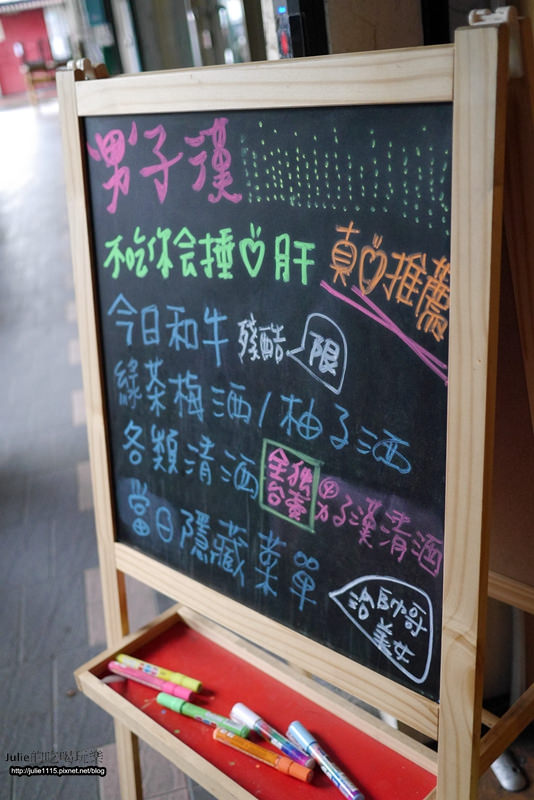 男子漢
不吃你会捶♡肝
真♡推薦
今日和牛 殘酷 限
綠茶梅酒/柚子酒
各類清酒 全台独賣 男子漢清酒
當日隱藏菜單
洽帥哥美女
Julie的吃喝玩樂
http://julie1115.pixnet.net/blog